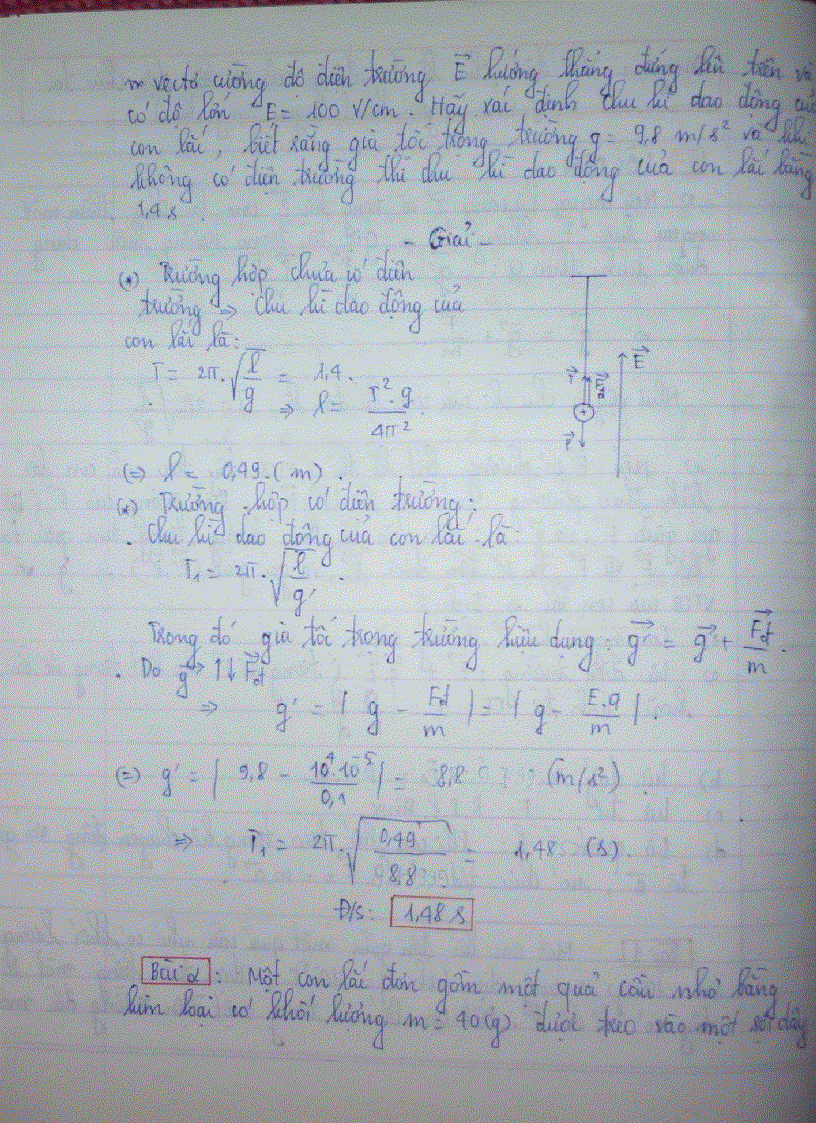 vectơ cường độ điện trường E⃗ hướng thẳng đứng lên trên và
có độ lớn E = 100 V/cm. Hãy xác định chu kì dao động của
con lắc, biết rằng gia tốc trọng trường g = 9,8 m/s² và khi
không có điện trường thì chu kì dao động của con lắc bằng
1,4 s.
- Giải -
(*) Trường hợp chưa có điện
trường ⇒ Chu kì dao động của
con lắc là:
T = 2π.√(l/g) = 1,4.
⇒ l = T².g/4π²
(=) l = 0,49.(m).
(*) Trường hợp có điện trường:
. Chu kì dao động của con lắc là:
T₁ = 2π.√(l/g').
E⃗
P⃗
+
Trong đó gia tốc trọng trường hiệu dụng: g⃗' = g⃗ + F⃗đ/m.
. Do g⃗ ↑↓ F⃗đ
⇒ g' = | g - Fđ/m | = | g - E.q/m |.
(=) g' = | 9,8 - 10⁴.10⁻⁵/0,1 | = 8,8 (m/s²)
⇒ T₁ = 2π.√(0,49/8,8) = 1,48 (s).
Đ/s: 1,48 s
Bài 2: Một con lắc đơn gồm một quả cầu nhỏ bằng
kim loại có khối lượng m = 40(g) được treo vào một sợi dây